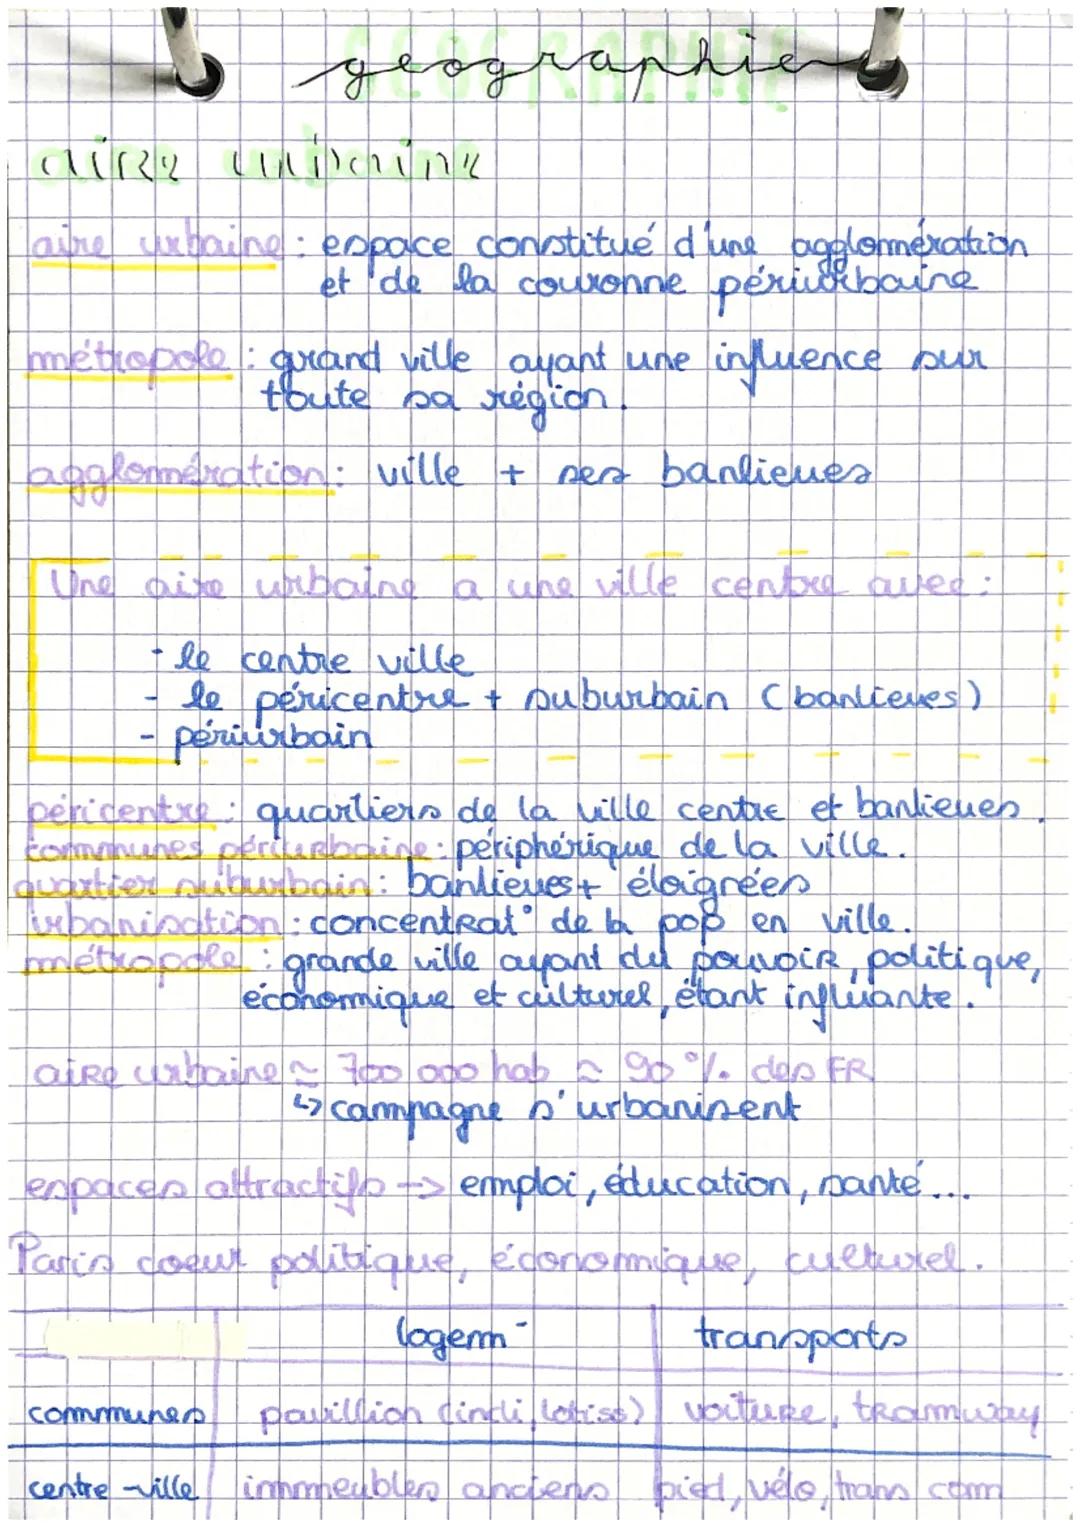 geographie
aire urbaine
aire urbaine : espace constitué d'une agglomération
et de la couronne périurbaine
métropole : grand ville ayant une influence sur
toute sa région.
agglomération : ville + ses banlieues
Une aire urbaine a une ville centre avec :
- le centre ville
- le péricentre + suburbain (banlieues)
- périurbain
péricentre : quartiers de la ville centre et banlieues.
communes périurbaine : périphérique de la ville.
quartier suburbain : banlieues + éloignées
urbanisation : concentrat° de la pop en ville.
métropole : grande ville ayant du pouvoir, politique,
économique et culturel, étant influante.
aire urbaine ≃ 700 000 hab ≃ 90 % des FR
↳ campagne s'urbanisent
espaces attractifs → emploi, éducation, santé...
Paris coeur politique, économique, culturel.
logem- transports
communes pavillion (indi, lotiss) voiture, tramway
centre-ville immeubles anciens pied, vélo, trans com